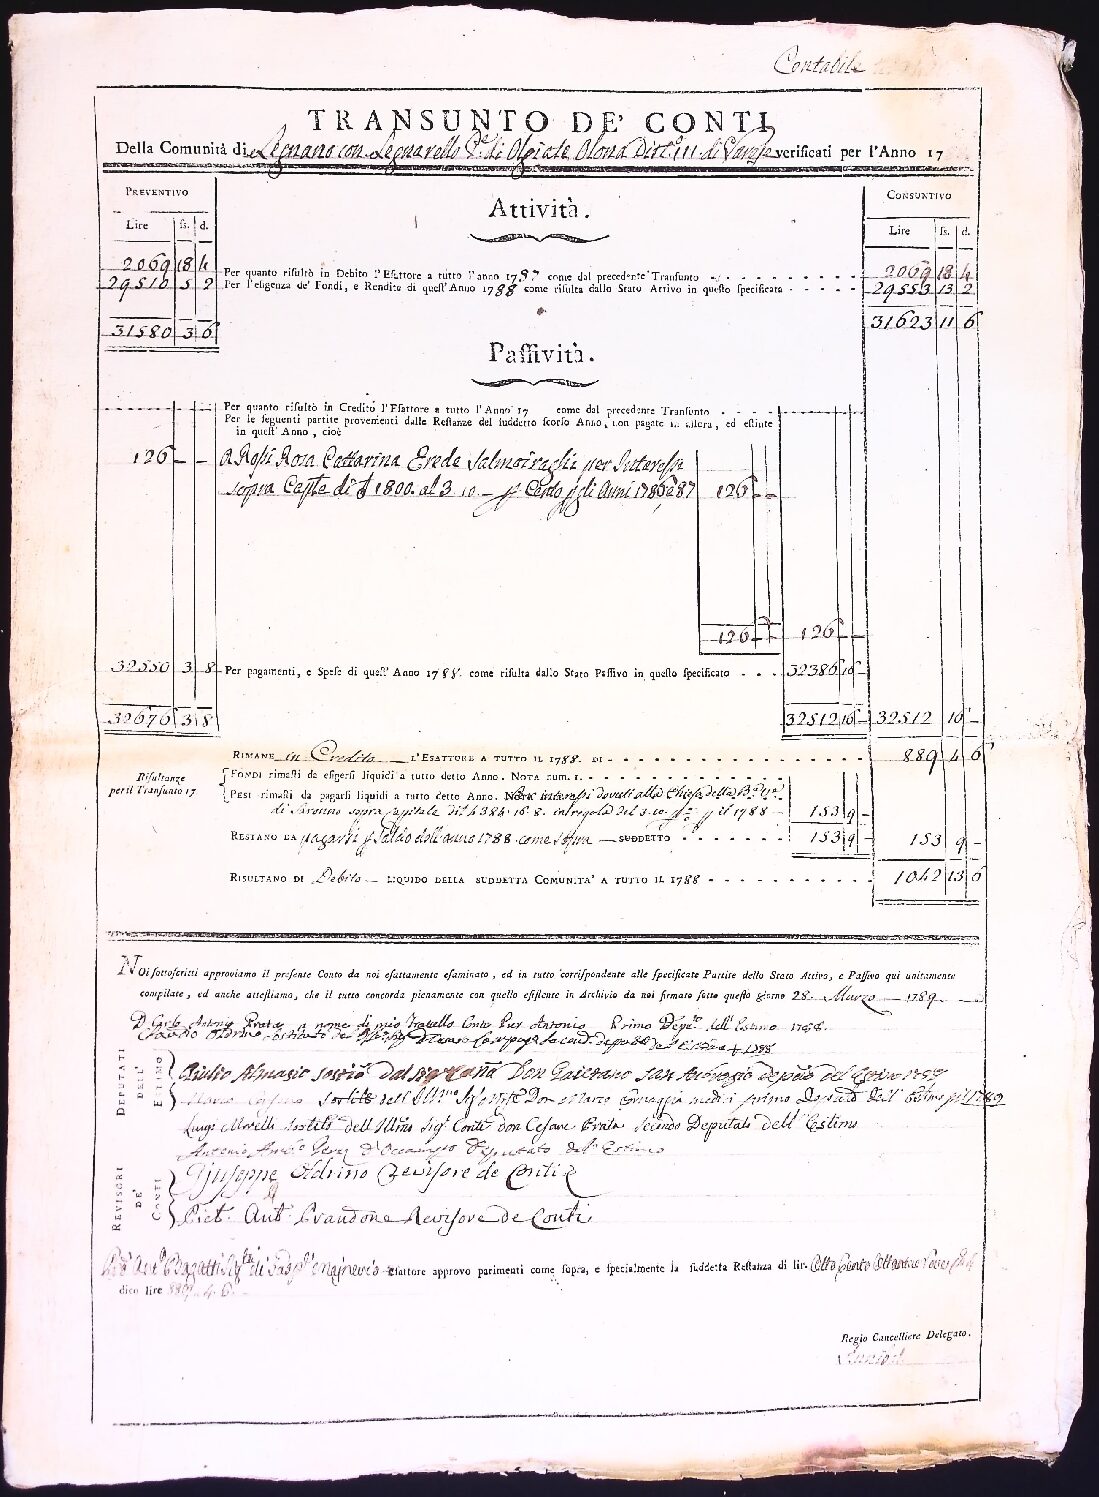 Contabile
TRANSUNTO DE' CONTI
Della Comunità di Legnano con Legnarello P.e di Olgiate Olona Dist.o III di Varese verificati per l'Anno 17
PREVENTIVO
Lire ſs. d.
CONSUNTIVO
Lire ſs. d.
Attività.
2069 18 4 Per quanto riſultò in Debito l'Eſattore a tutto l'anno 1787 come dal precedente Tranſunto 2069 18 4
29510 5 2 Per l'eſigenza de' Fondi, e Rendite di queſt'Anno 1788 come riſulta dallo Stato Attivo in queſto ſpecificato 29553 13 2
31580 3 6 31623 11 6
Paſſività.
Per quanto riſultò in Credito l'Eſattore a tutto l'Anno 17 come dal precedente Tranſunto
Per le ſeguenti partite provenienti dalle Reſtanze del ſuddetto ſcorſo Anno, non pagate in allora, ed eſtinte
in queſt'Anno, cioè
126 - - A Rosſi Rosa Cattarina Erede Salmoiraghi per Interesſe
sopra Capta di 1800. al 3 10 - Cento gli Anni 1786 e 87 126 - -
126 - - 126 - -
32550 3 8 Per pagamenti, e Speſe di queſt'Anno 1788. come riſulta dallo Stato Paſſivo in queſto ſpecificato 32386 16 -
32676 3 8 32512 16 - 32512 16 -
RIMANE in Credito L'ESATTORE A TUTTO IL 1788. DI 889 4 6
Riſultanze
per il Tranſunto 17
FONDI rimaſti da eſigerſi liquidi a tutto detto Anno. NOTA NUM. 1.
PESI rimaſti da pagarſi liquidi a tutto detto Anno. NOTA interessi dovuti alla Chiesa della B.a V.e
di Saronno sopra capitale di 4384. 16. 8. in regola del 3. 10. il 1788 153 9 -
RESTANO DA pagarsi Saldo dell'anno 1788 come sopra SUDDETTO 153 9 - 153 9 -
RISULTANO DI Debito LIQUIDO DELLA SUDDETTA COMUNITA' A TUTTO IL 1788 1042 13 6
NOi ſottoſcritti approviamo il preſente Conto da noi eſattamente eſaminato, ed in tutto corriſpondente alle ſpecificate Partite dello Stato Attivo, e Paſſivo qui unitamente
compilate, ed anche atteſtiamo, che il tutto concorda pienamente con quello eſiſtente in Archivio da noi firmato ſotto queſto giorno 28. Marzo 1789
D. Carlo Antonio Prata a nome di mio Fratello Conte Pier Antonio Primo Dep.to dell'Estimo 1788.
Claudio Oldrino sostituto
DEPUTATI DELL' ESTIMO
Giulio Almasio Don Gaietano San Ambrogio 1789
Sostito dell' Ill.mo Don Marco primo Deputo dell' Estimo 1789
Luigi Morelli sostito dell'Illmo Sig.r Conte Don Cesare Prata Secondo Deputato dell'Estimo
Antonio Deputato del Estimo
REVISORI DE' CONTI
Giuseppe Oldrino Revisore de Conti
Piet. Ant. Prandone Revisore de Conti
Eſattore approvo parimenti come ſopra, e ſpecialmente la ſuddetta Reſtanza di lir. Otto Cento Ottanta Nove
dico lire 889. 4. 6
Regio Cancelliere Delegato.